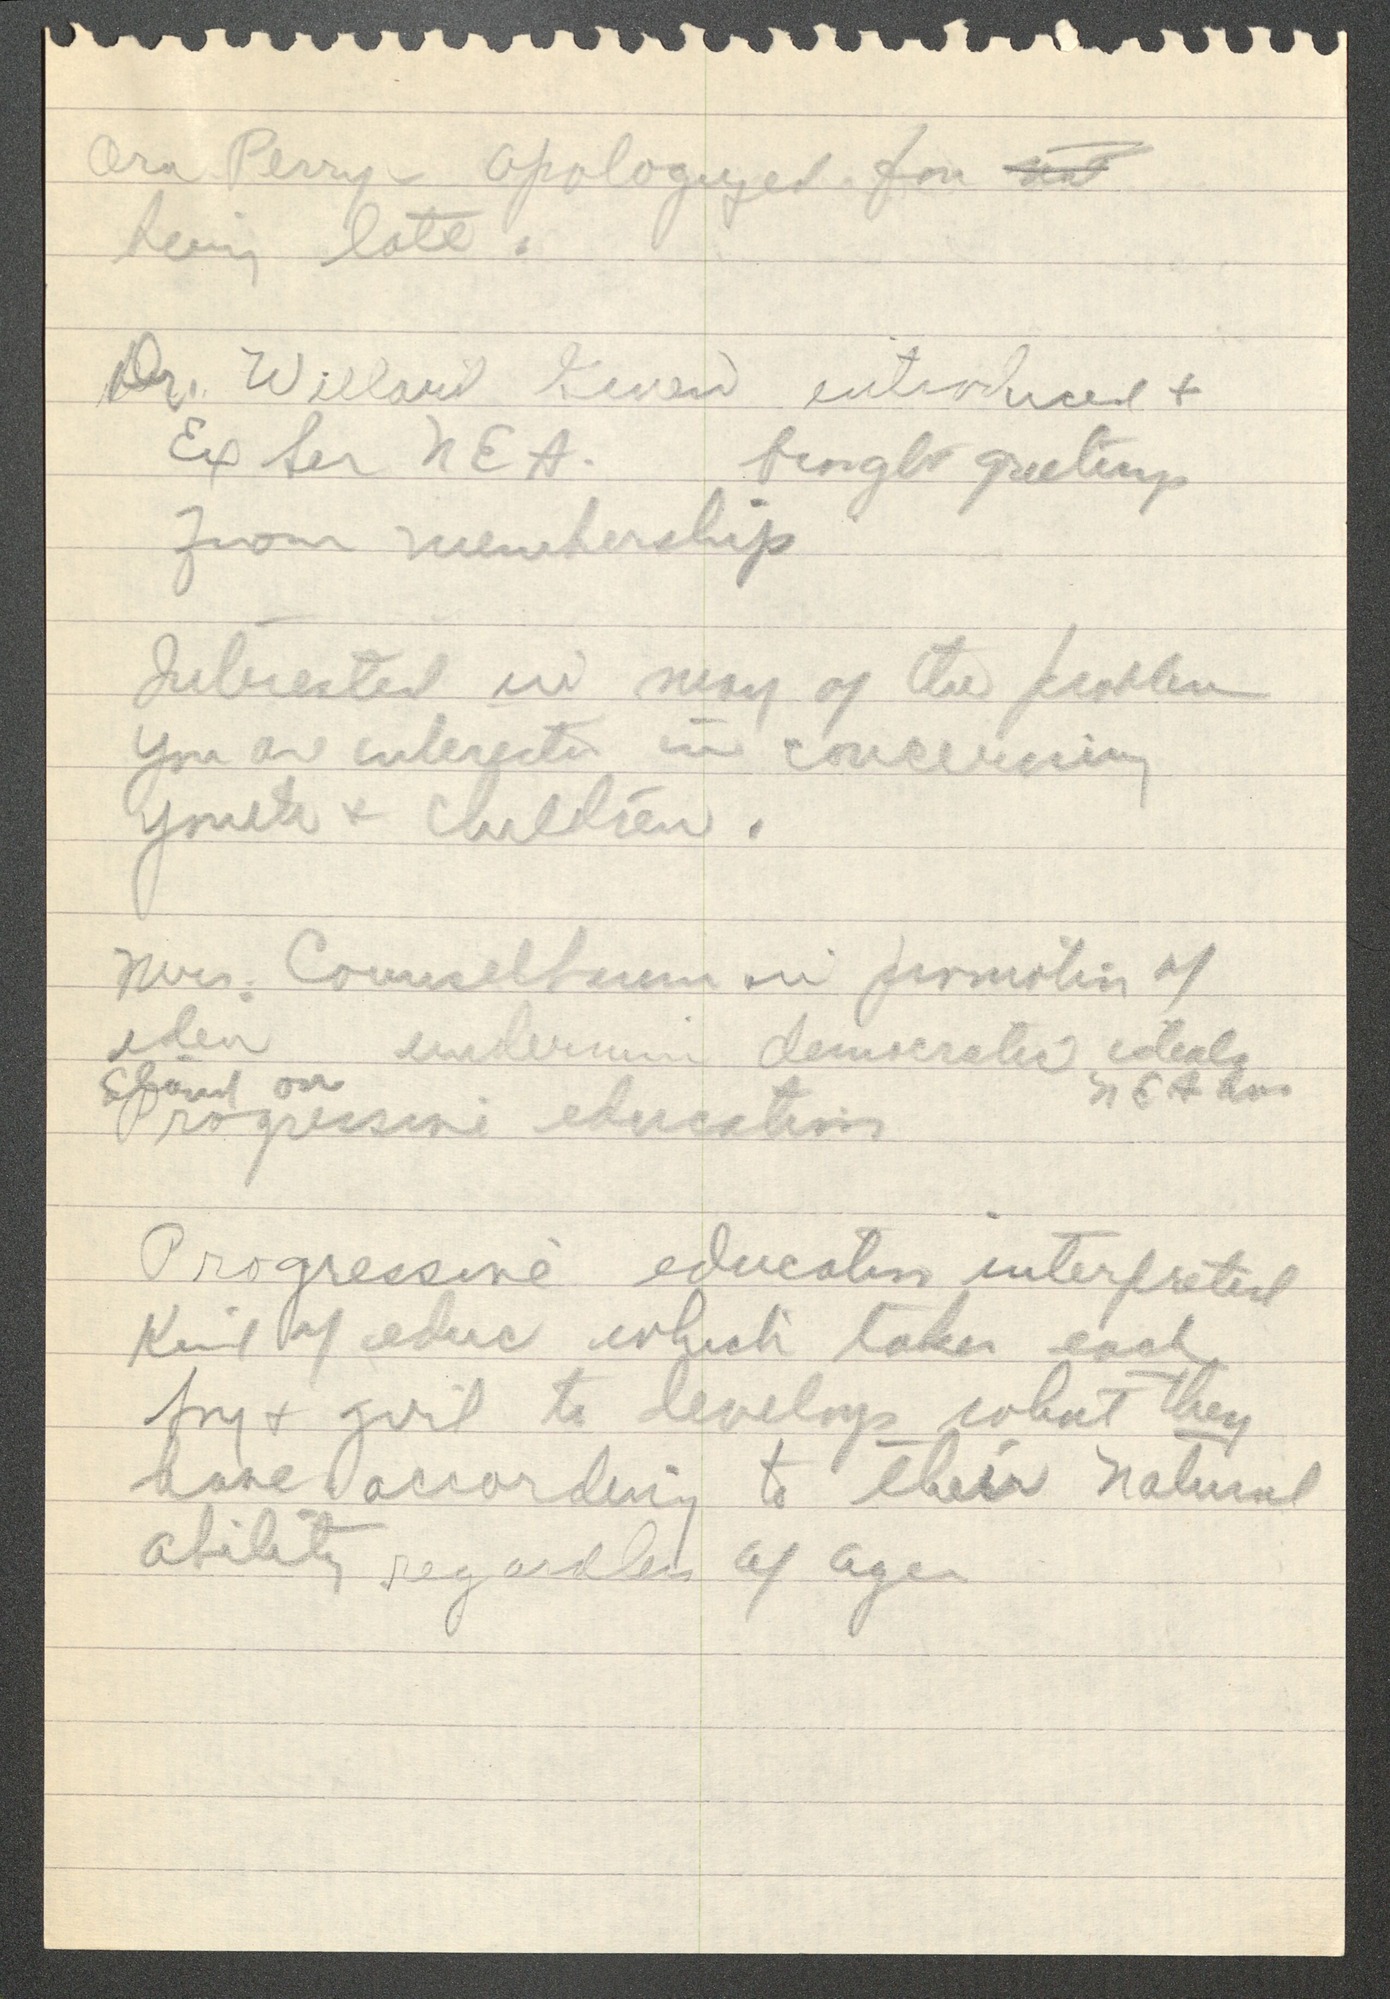 Ora Perry apologized for not
being late.
Dr. Willard Givens introduced +
Ex Sec N E A. brought greetings
from membership
Interested in many of the problem
you are interested in concerning
youth + children.
Mrs. in promotion of
idea undermin democratic ideals
Stand on N E A has
Progressive education
Progressive education interpreted
Kind of educ which takes each
boy + girl to develop what they
have according to their natural
ability regardless of age